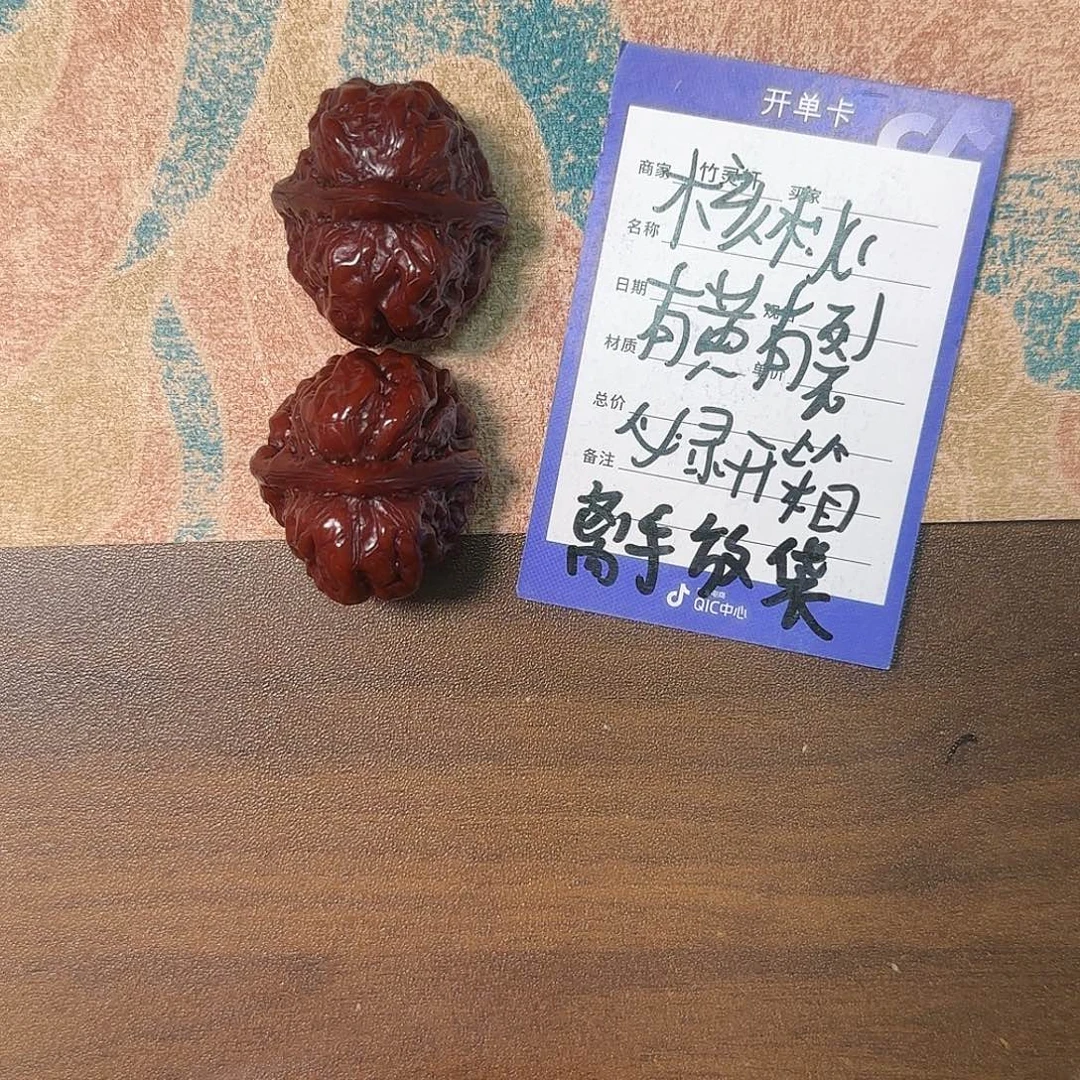 开单卡
商家 竹灵轩 买家
核桃
名称
日期
有黄有裂
材质 单价
总价
少绿开箱
备注
离手放袋
QIC中心